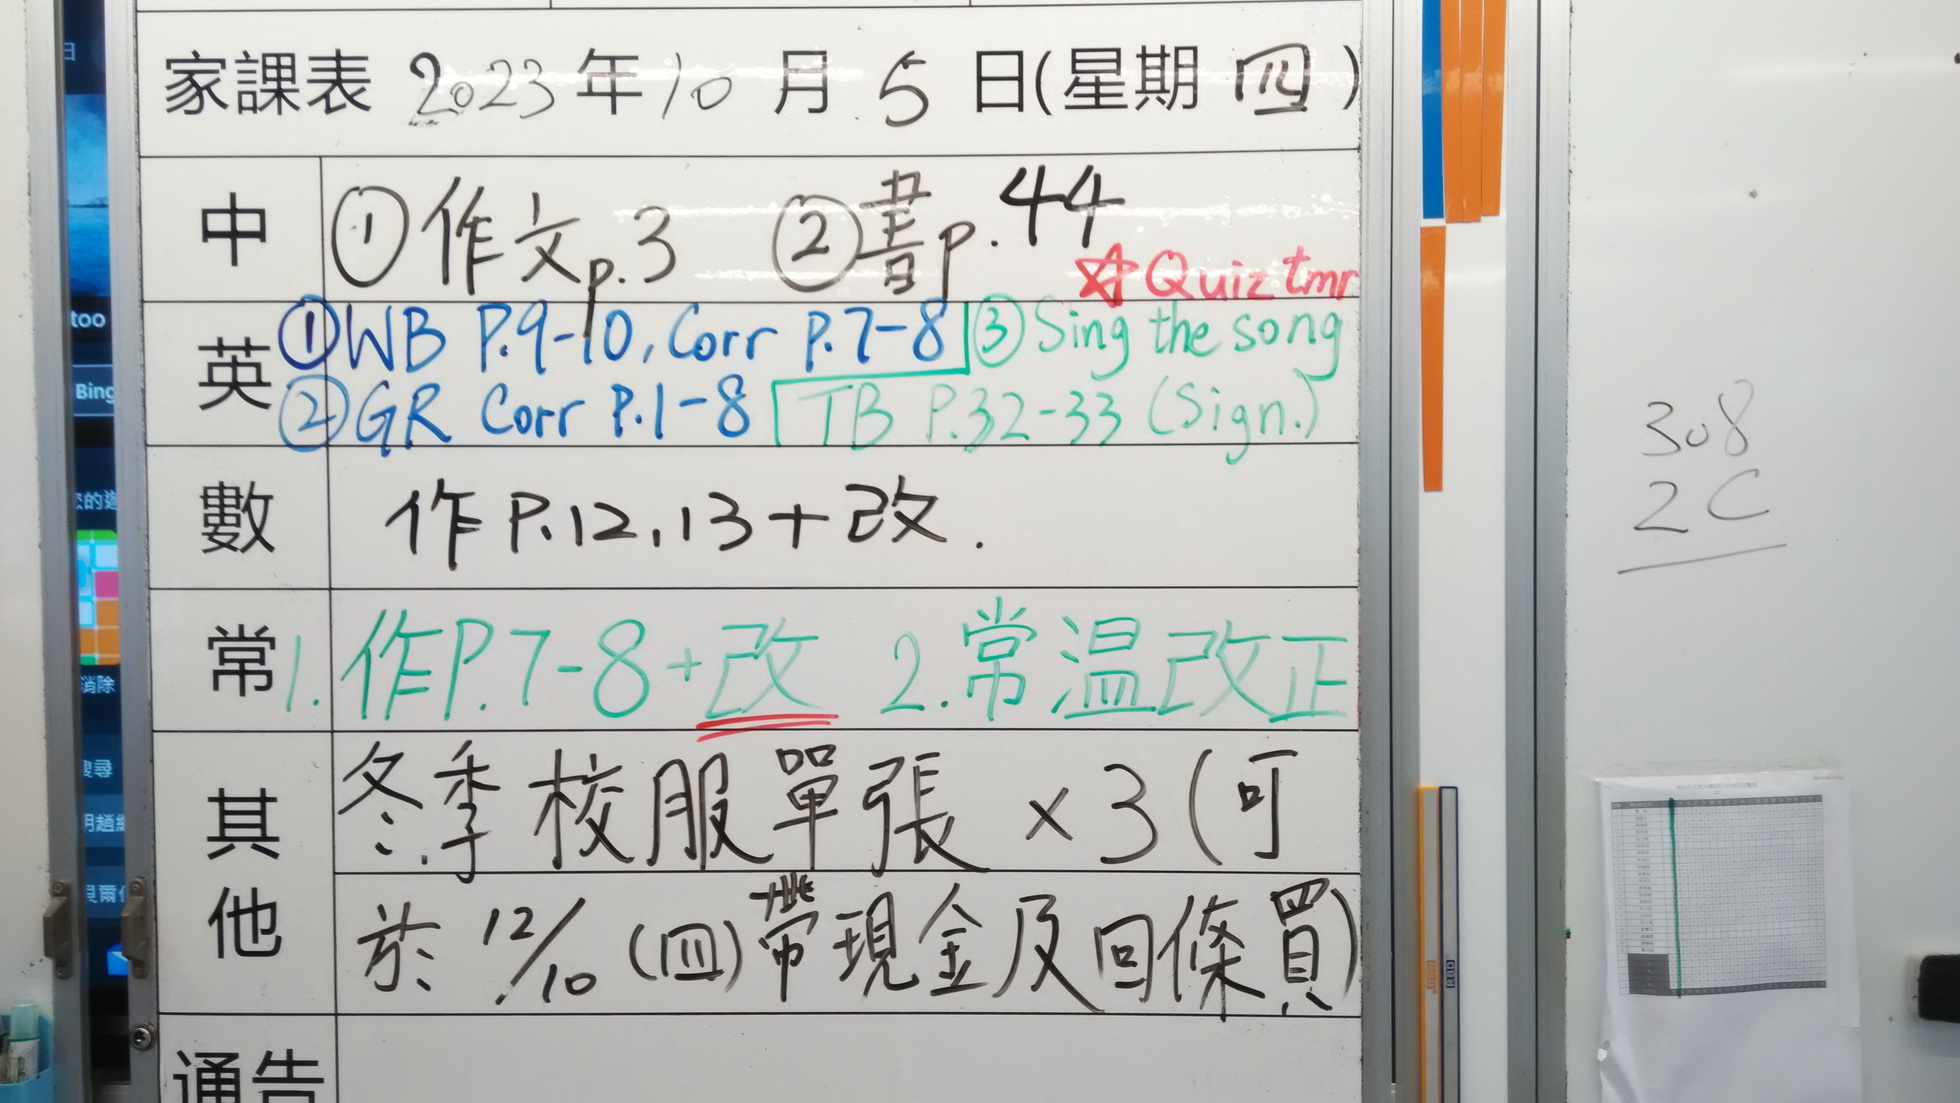 家課表 2023年10月5日(星期四)
中 ①作文p.3 ②書p.44
☆Quiz tmr
英 ①WB P.9-10, Corr P.7-8 ③Sing the song
②GR Corr P.1-8 TB P.32-33 (Sign.)
數 作P.12,13+改.
常 1.作P.7-8+改 2.常温改正
其他 冬季校服單張×3(可
於12/10(四)帶現金及回條買)
通告
日
too
Bing
您的遊
消除
搜尋
貝爾
308
2C